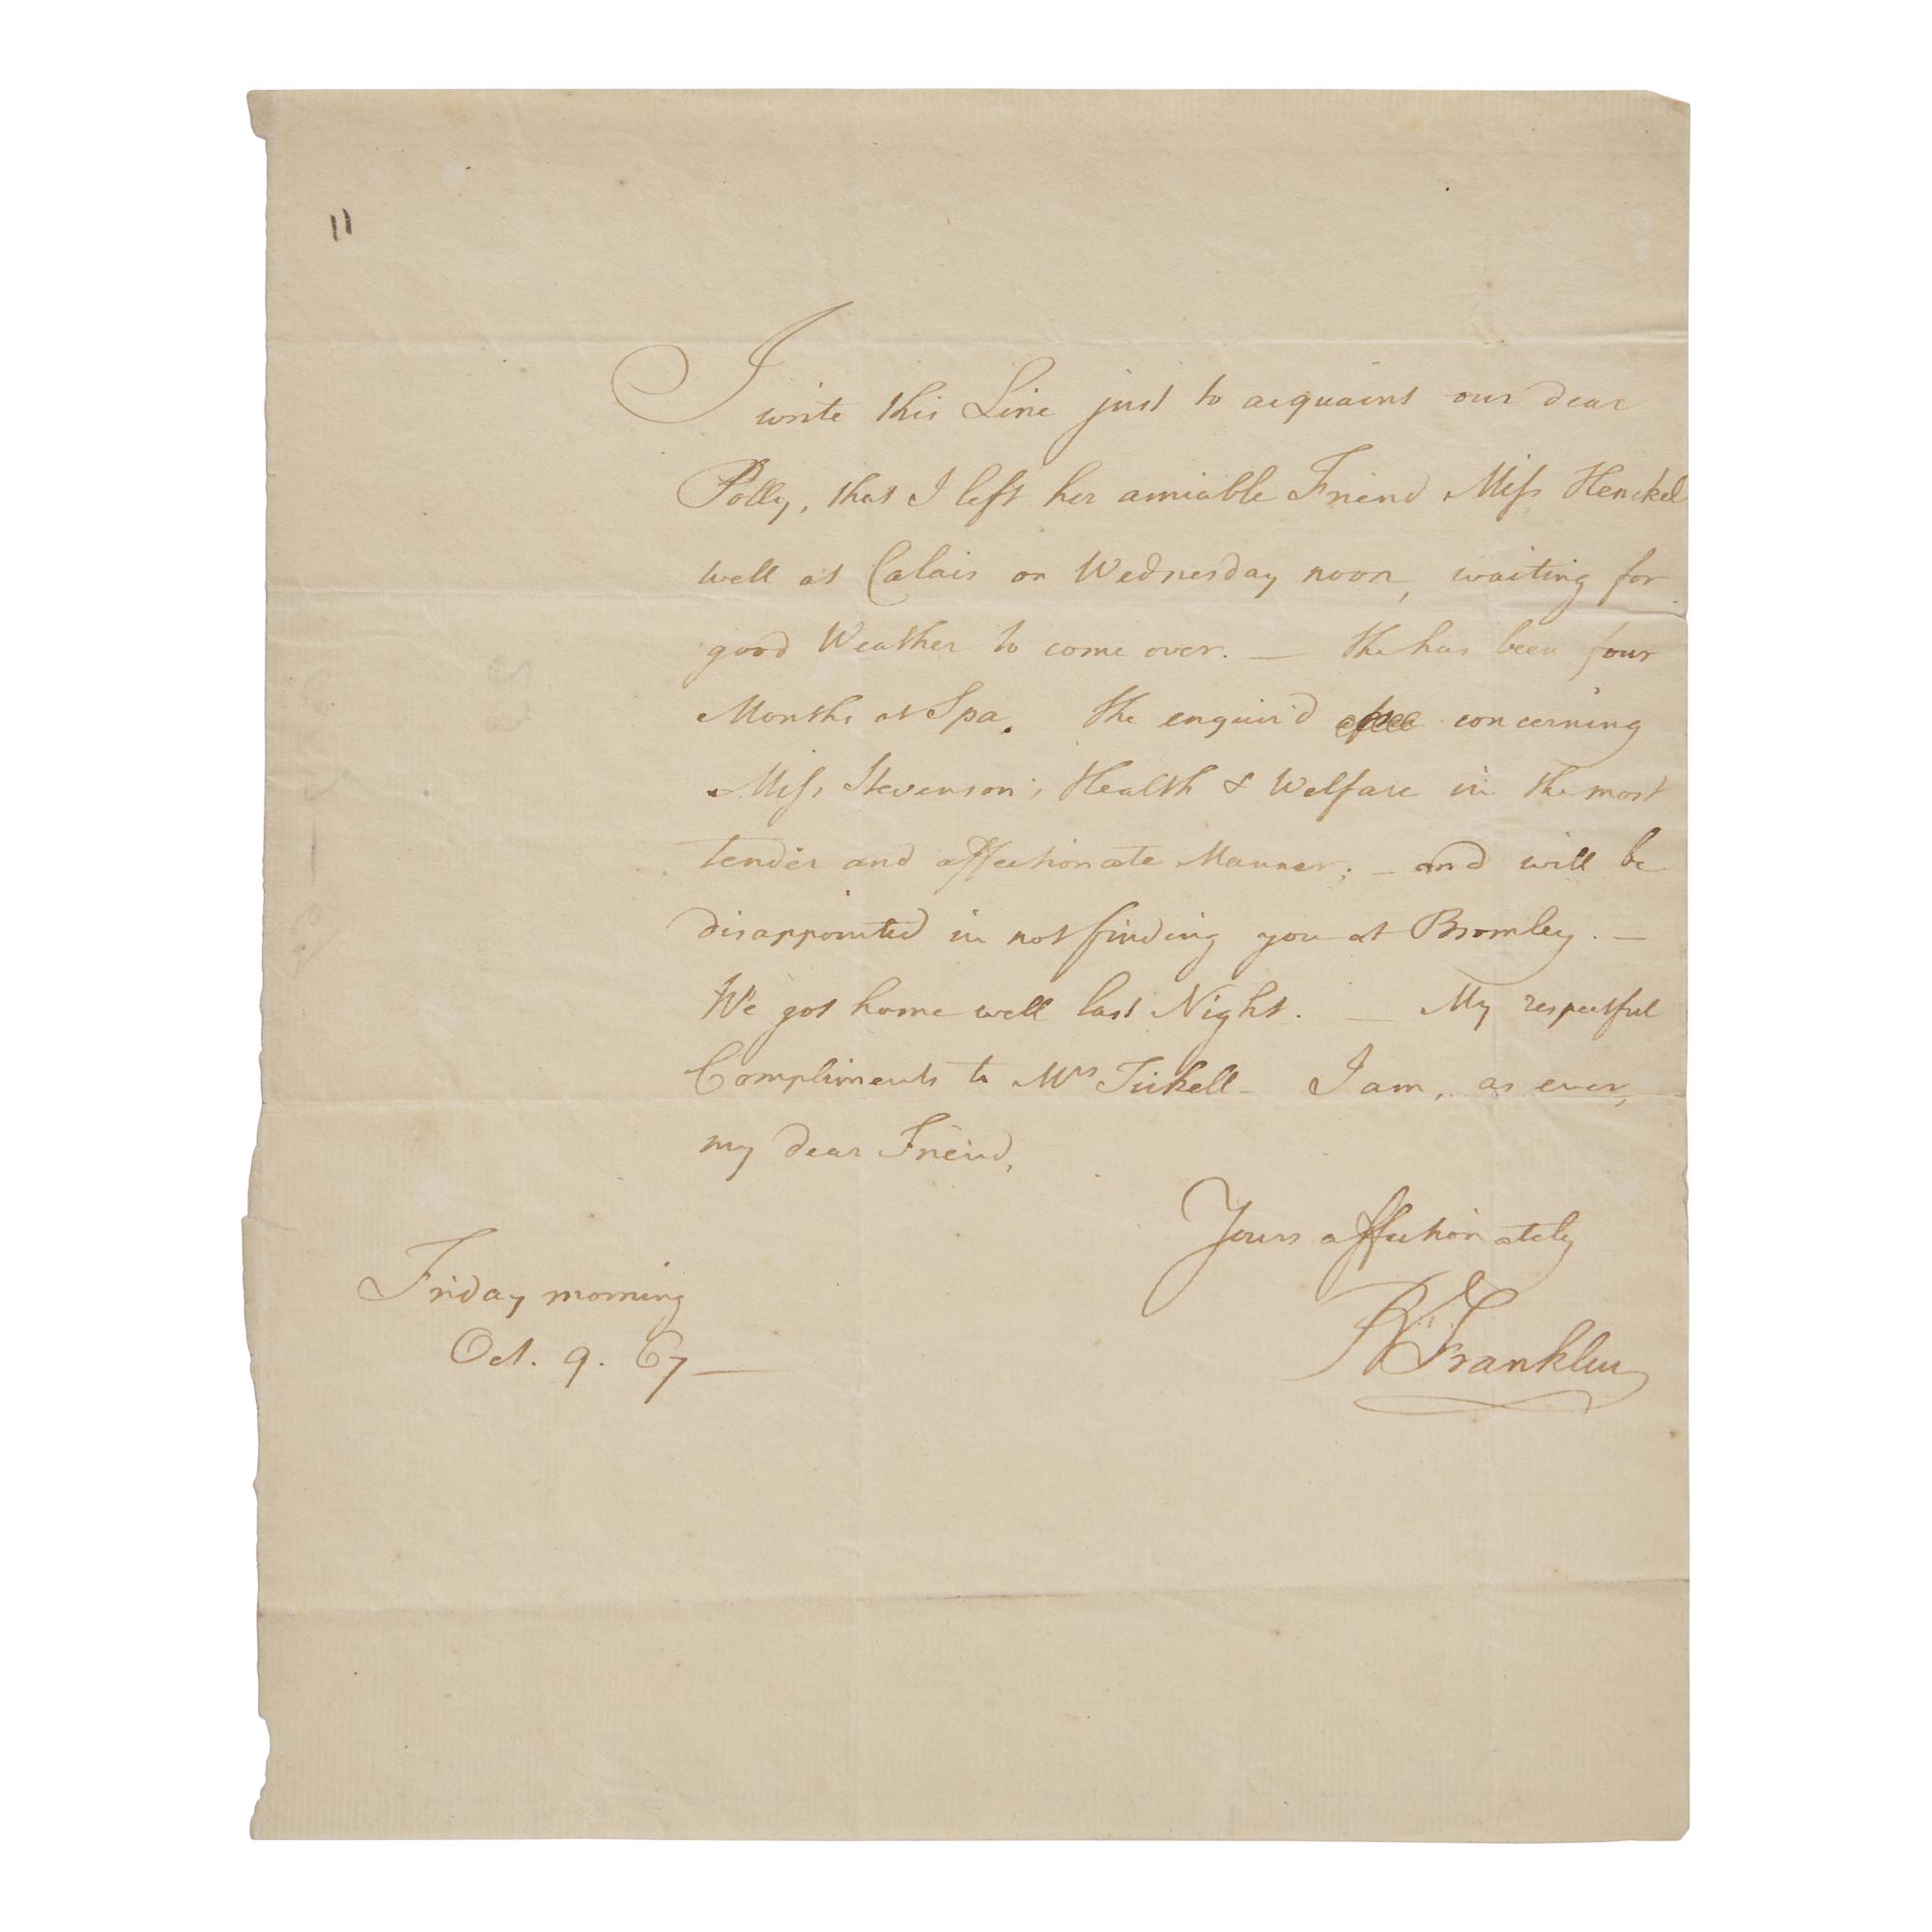 11
I write this Line just to acquaint our dear
Polly, that I left her amiable Friend Miss Henckel
well at Calais on Wednesday noon, waiting for
good Weather to come over. — She has been four
Months at Spa. She enquir'd concerning
Miss Stevenson's Health & Welfare in the most
tender and affectionate Manner; — and will be
disappointed in not finding you at Bromley. —
We got home well last Night. — My respectful
Compliments to Mrs Tickell — I am, as ever,
my dear Friend,
Yours affectionately
B Franklin
Friday morning
Oct. 9. 67 —